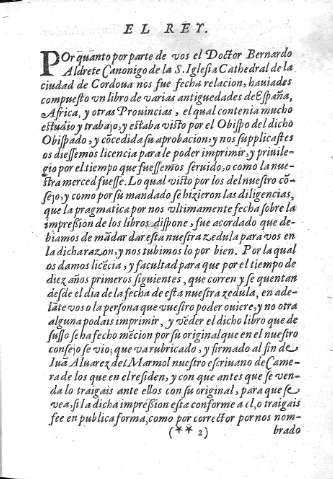 EL REY.
POr quanto por parte de vos el Doctor Bernardo
Aldrete Canonigo de la S. Iglesia Cathedral de la
ciudad de Cordoua nos fue fecha relacion, hauiades
compuesto vn libro de varias antiguedades de España,
Africa, y otras Prouincias, el qual contenia mucho
estudio y trabajo, y estaba visto por el Obispo del dicho
Obispado, y cõcedida su aprobacion, y nos supplicastes
os diessemos licencia para le poder imprimir, y priuile-
gio por el tiempo que fuessemos seruido, o como la nue-
stra merced fuesse. Lo qual visto por los del nuestro cõ-
sejo, y como por su mandado se hizieron las diligencias,
que la pragmatica por nos vltimamente fecha sobre la
impression de los libros dispone, fue acordado que de-
biamos de mãdar dar esta nuestra zedula para vos en
la dicha razon, y nos tubimos lo por bien. Por la qual
os damos licẽcia, y facultad para que por el tiempo de
diez años primeros siguientes, que corren y se quentan
desde el dia de la fecha de esta nuestra zedula, en ade-
lãte vos o la persona que vuestro poder ouiere, y no otra
alguna podais imprimir, y vẽder el dicho libro que de
susso se ha fecho mẽcion por su original que en el nuestro
consejo se vio, que va rubricado, y firmado al fin de
Juã Aluarez del Marmol nuestro escriuano de Came-
ra de los que en el residen, y con que antes que se ven-
da lo traigais ante ellos con su original, para que se
vea, si la dicha impression esta conforme a el, o traigais
fee en publica forma, como por corrector por nos nom-
(** 2) brado